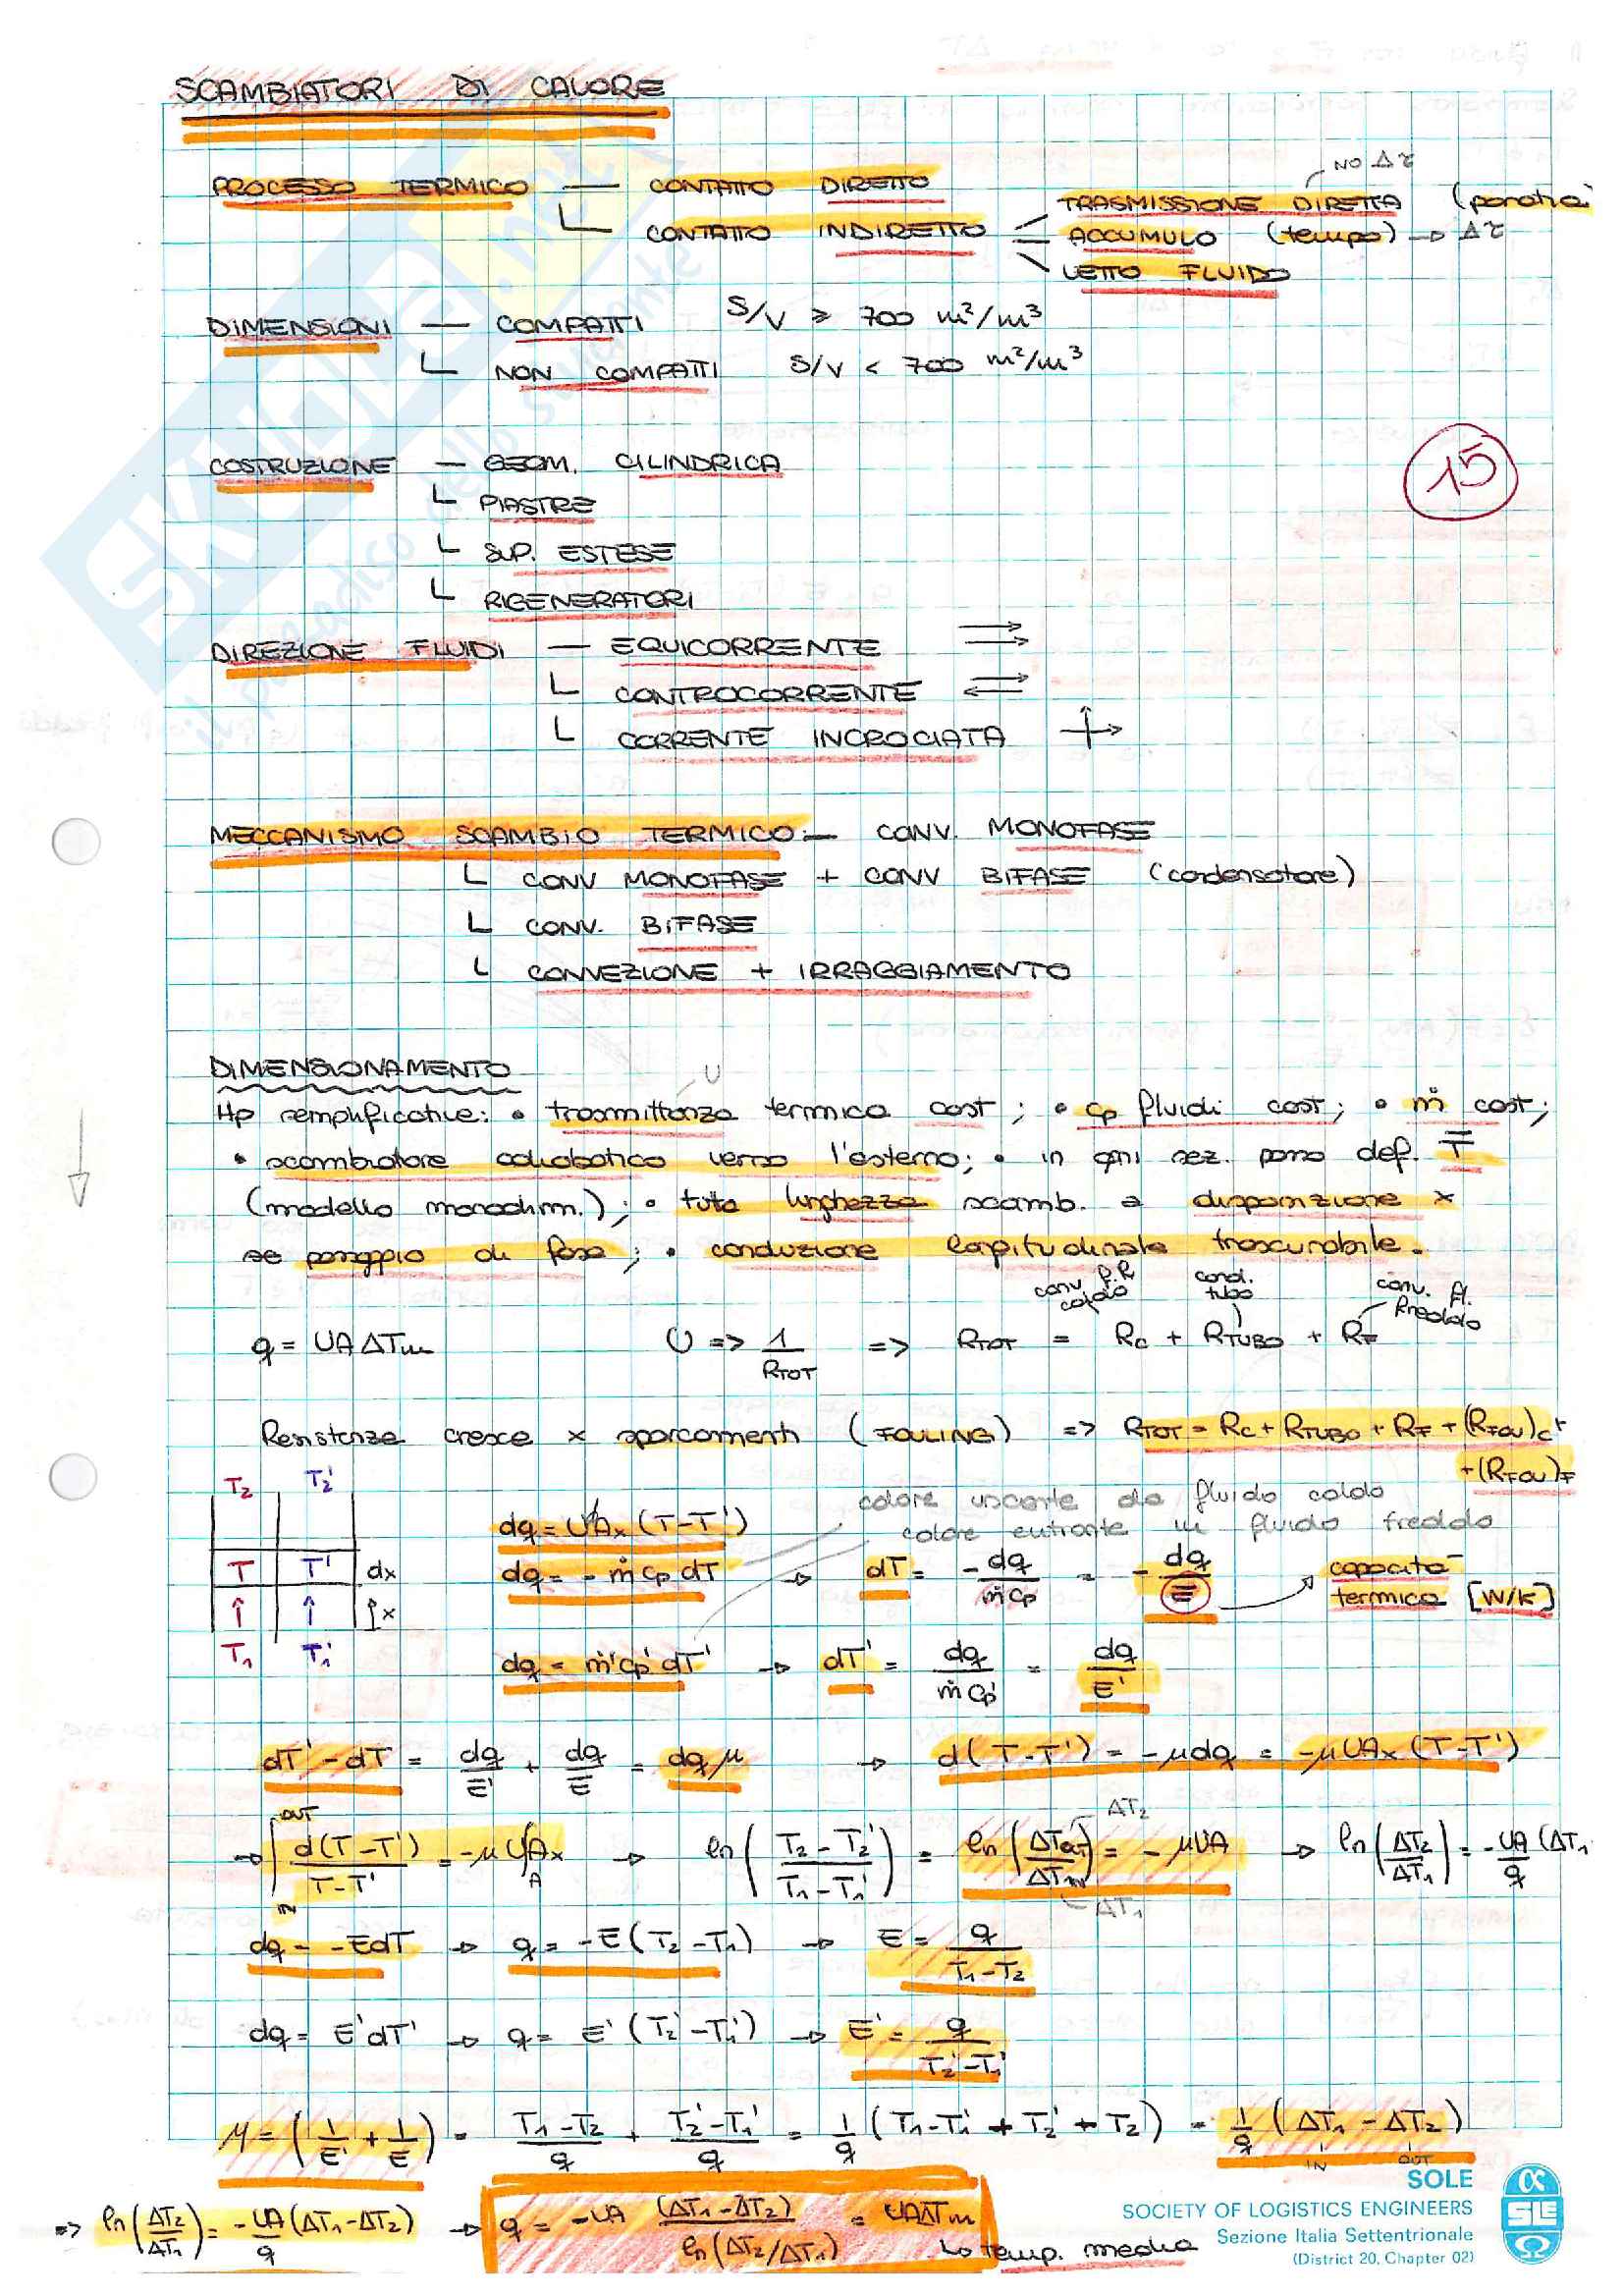 SCAMBIATORI DI CALORE
NO Δτ
PROCESSO TERMICO — CONTATTO DIRETTO
TRASMISSIONE DIRETTA (
└ CONTATTO INDIRETTO
ACCUMULO (tempo) → Δτ
LETTO FLUIDO
DIMENSIONI — COMPATTI S/V ≥ 700 m²/m³
└ NON COMPATTI S/V < 700 m²/m³
COSTRUZIONE — GEOM. CILINDRICA
15
└ PIASTRE
└ SUP. ESTESE
└ RIGENERATORI
DIREZIONE FLUIDI — EQUICORRENTE
└ CONTROCORRENTE
└ CORRENTE INCROCIATA
MECCANISMO SCAMBIO TERMICO — CONV. MONOFASE
└ CONV MONOFASE + CONV BIFASE (condensatore)
└ CONV. BIFASE
└ CONVEZIONE + IRRAGGIAMENTO
DIMENSIONAMENTO
U
Hp semplificative: • trasmittanza termica cost; • cp fluidi cost; • ṁ cost;
• scambiatore adiabatico verso l'esterno; • in ogni sez. posso def. T̄
(modello monodim.); • tutta lunghezza scamb. a disposizione x
se passaggio di fase; • conduzione longitudinale trascurabile.
conv. caldo cond. tubo conv. fl. freddo
q = UAΔTm U => 1/RTOT => RTOT = Rc + RTUBO + RF
Resistenza cresce x sporcamenti (FOULING) => RTOT = Rc + RTUBO + RF + (RFOU)c +
+ (RFOU)F
T2 T2'
calore uscente da fluido caldo
calore entrante in fluido freddo
dq = UAx (T-T')
T T' dx
dq = - ṁ cp dT → dT = -dq/ṁcp = - dq/E capacità termica [W/K]
x
T1 T1'
dq = ṁ'cp' dT' → dT' = dq/ṁcp' = dq/E'
dT' - dT = dq/E' + dq/E = dq μ → d(T-T') = -μdq = -μUAx (T-T')
→ ∫IN OUT d(T-T')/T-T' = -μ U∫A Ax → ln(T2-T2'/T1-T1') = ln(ΔTOUT/ΔTIN) = -μUA → ln(ΔT2/ΔT1) = -UA/q (ΔT1
ΔT2
ΔT1
dq = -EdT → q = -E(T2-T1) → E = q/T1-T2
dq = E'dT' → q = E'(T2'-T1') → E' = q/T2'-T1'
μ = (1/E' + 1/E) = T1-T2/q + T2'-T1'/q = 1/q (T1-T1' + T2' + T2) = 1/q (ΔT1 - ΔT2)
IN OUT
=> ln(ΔT2/ΔT1) = -UA/q (ΔT1-ΔT2) → q = -UA (ΔT1-ΔT2)/ln(ΔT2/ΔT1) = UAΔTm
↳ temp. media
SOLE
SOCIETY OF LOGISTICS ENGINEERS
Sezione Italia Settentrionale
(District 20, Chapter 02)
SOLE
SKUOLA.net
il paradiso dello studente